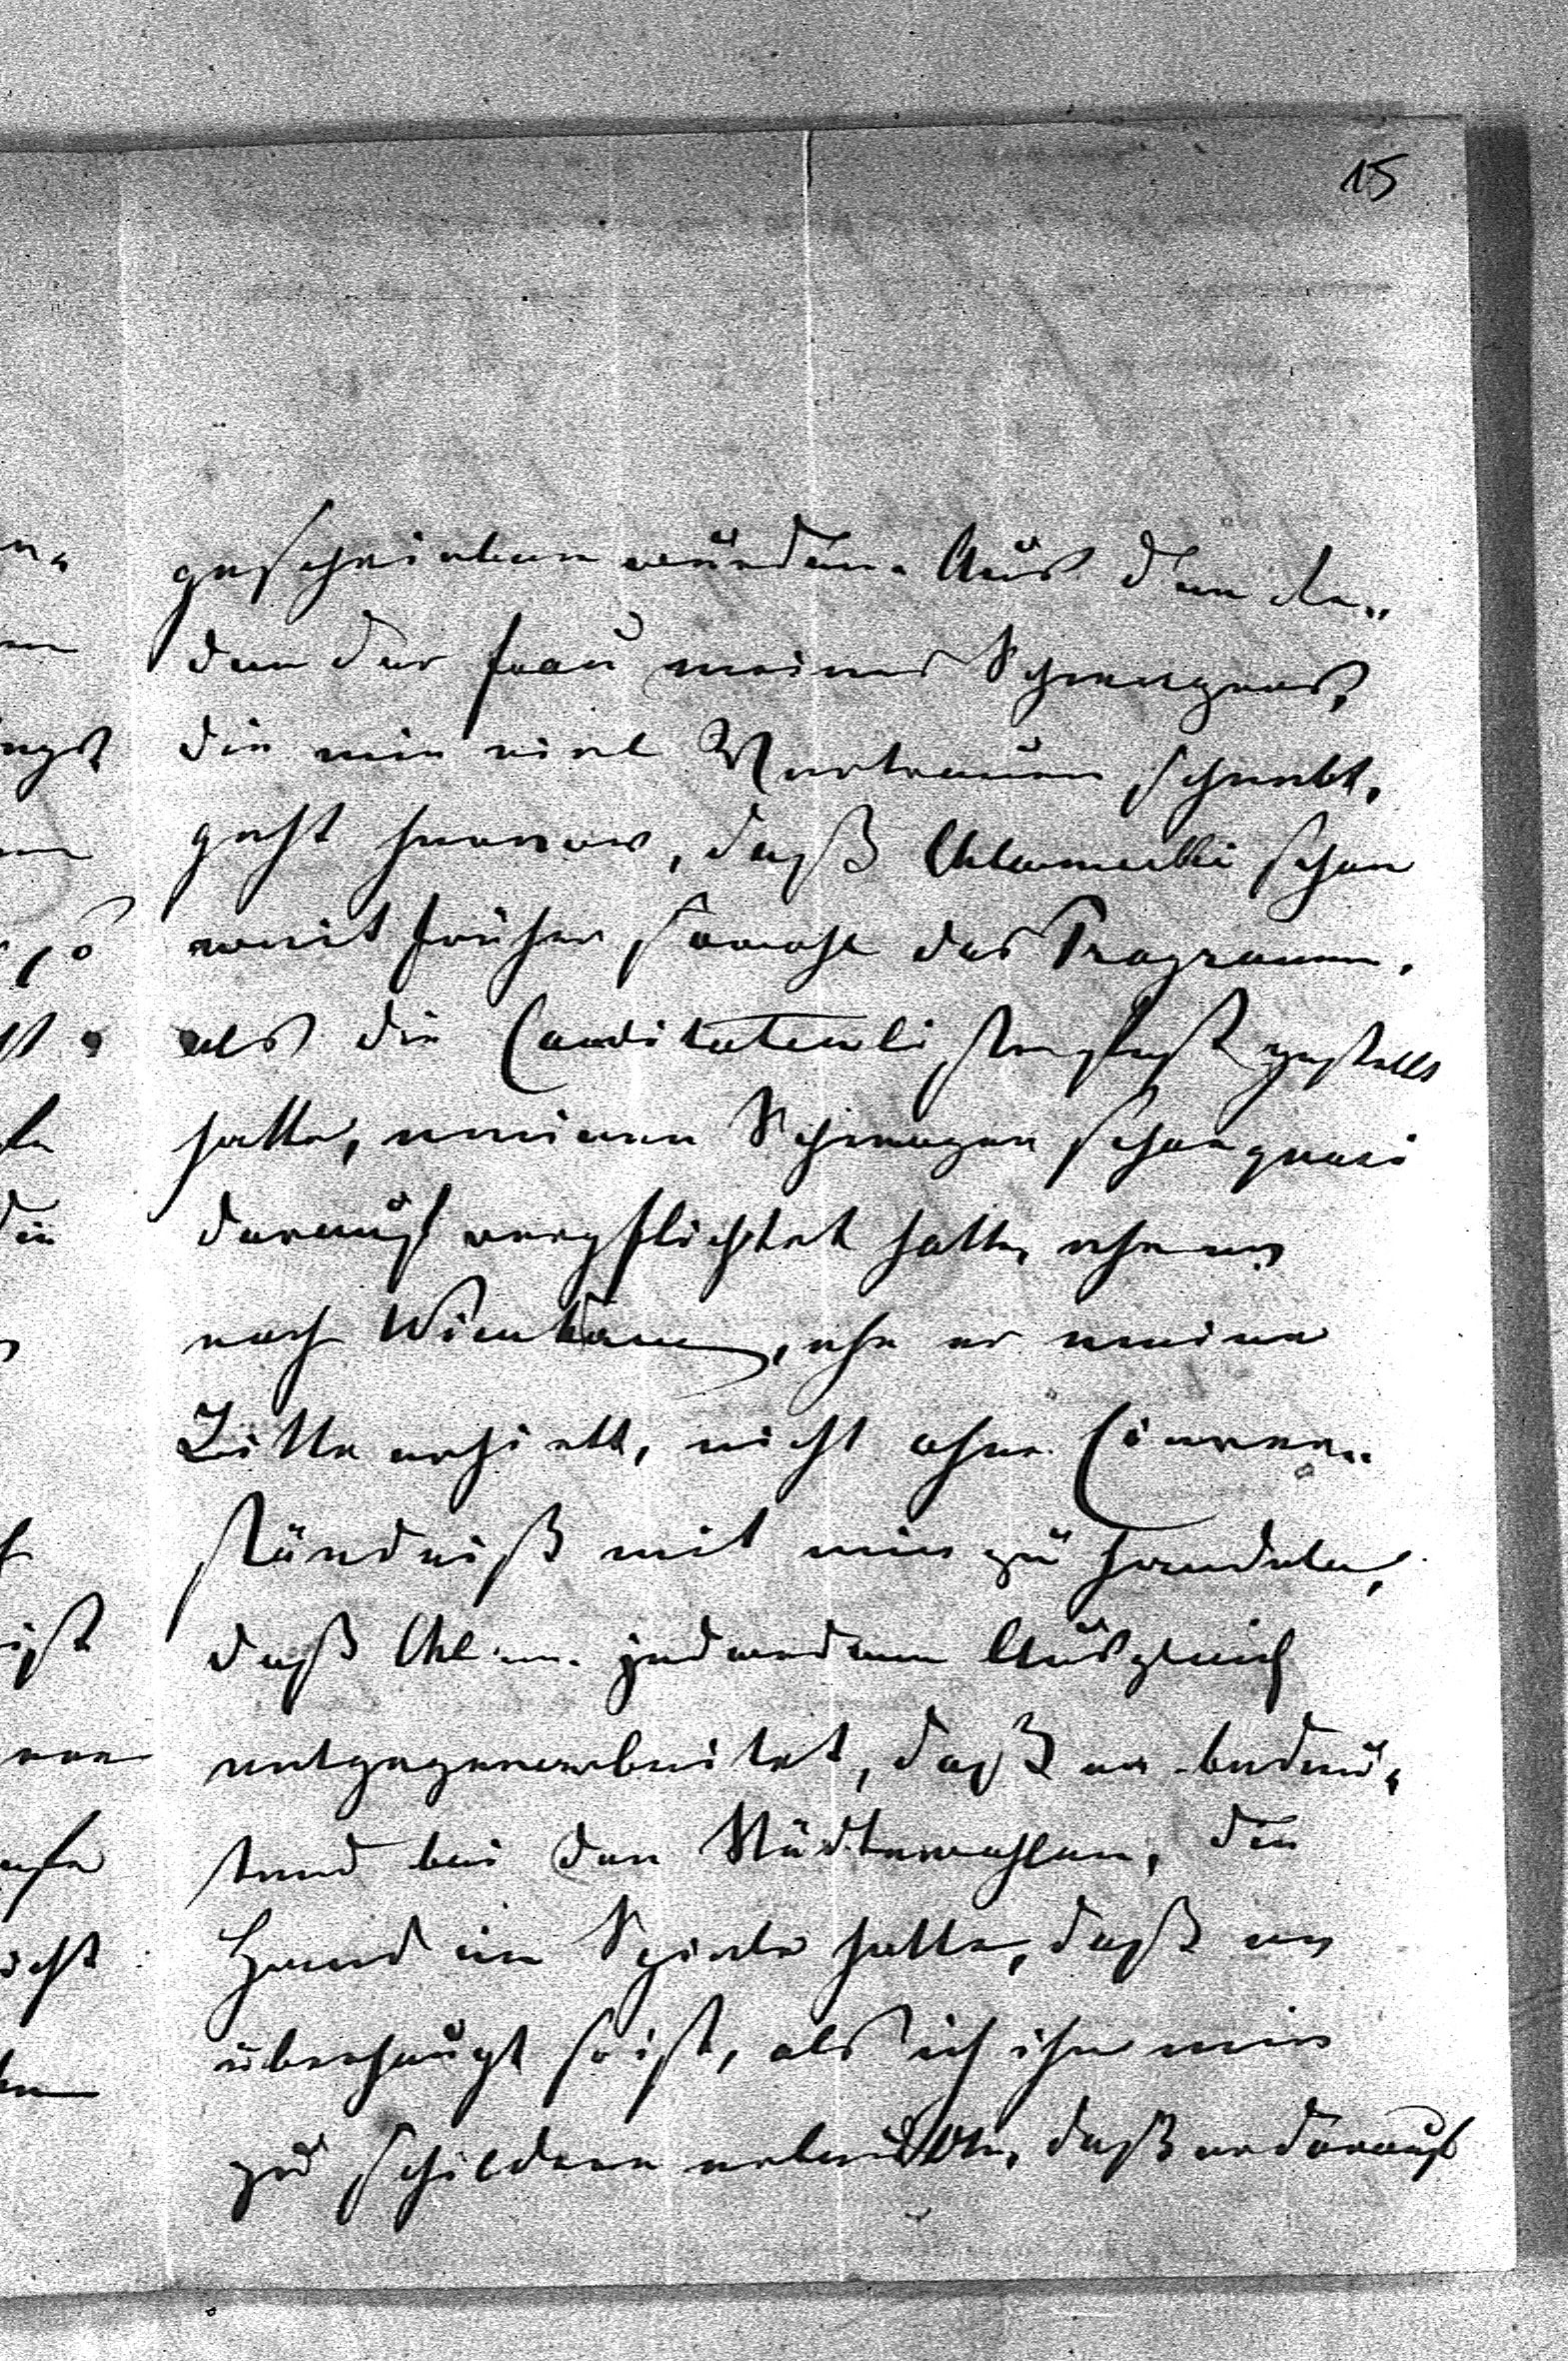 15
geschrieben würden. Aus den Re„
den der Frau meines Schwagers,
die mir viel Vertrauen schenkt,
geht hervor, daß Chlumetzki schon
weit früher sowohl das Programm,
als die Canditatenliste festgestellt
hatte, meinen Schwager schon quasi
darauf verpflichtet hatte, ehe er
nach Wien kam, ehe er meine
Bitte erhielt, nicht ohne Einver„
ständniß mit mir zu handeln,
daß Chlum. jedwedem Ausgleich
entgegenarbeitet, daß er bedeu„
tend bei den Städtewahlen, die
Hand im Spiele hatte, daß er
überhaupt so ist, als ich ihn mir
zu schildern erlaubte, daß er darauf